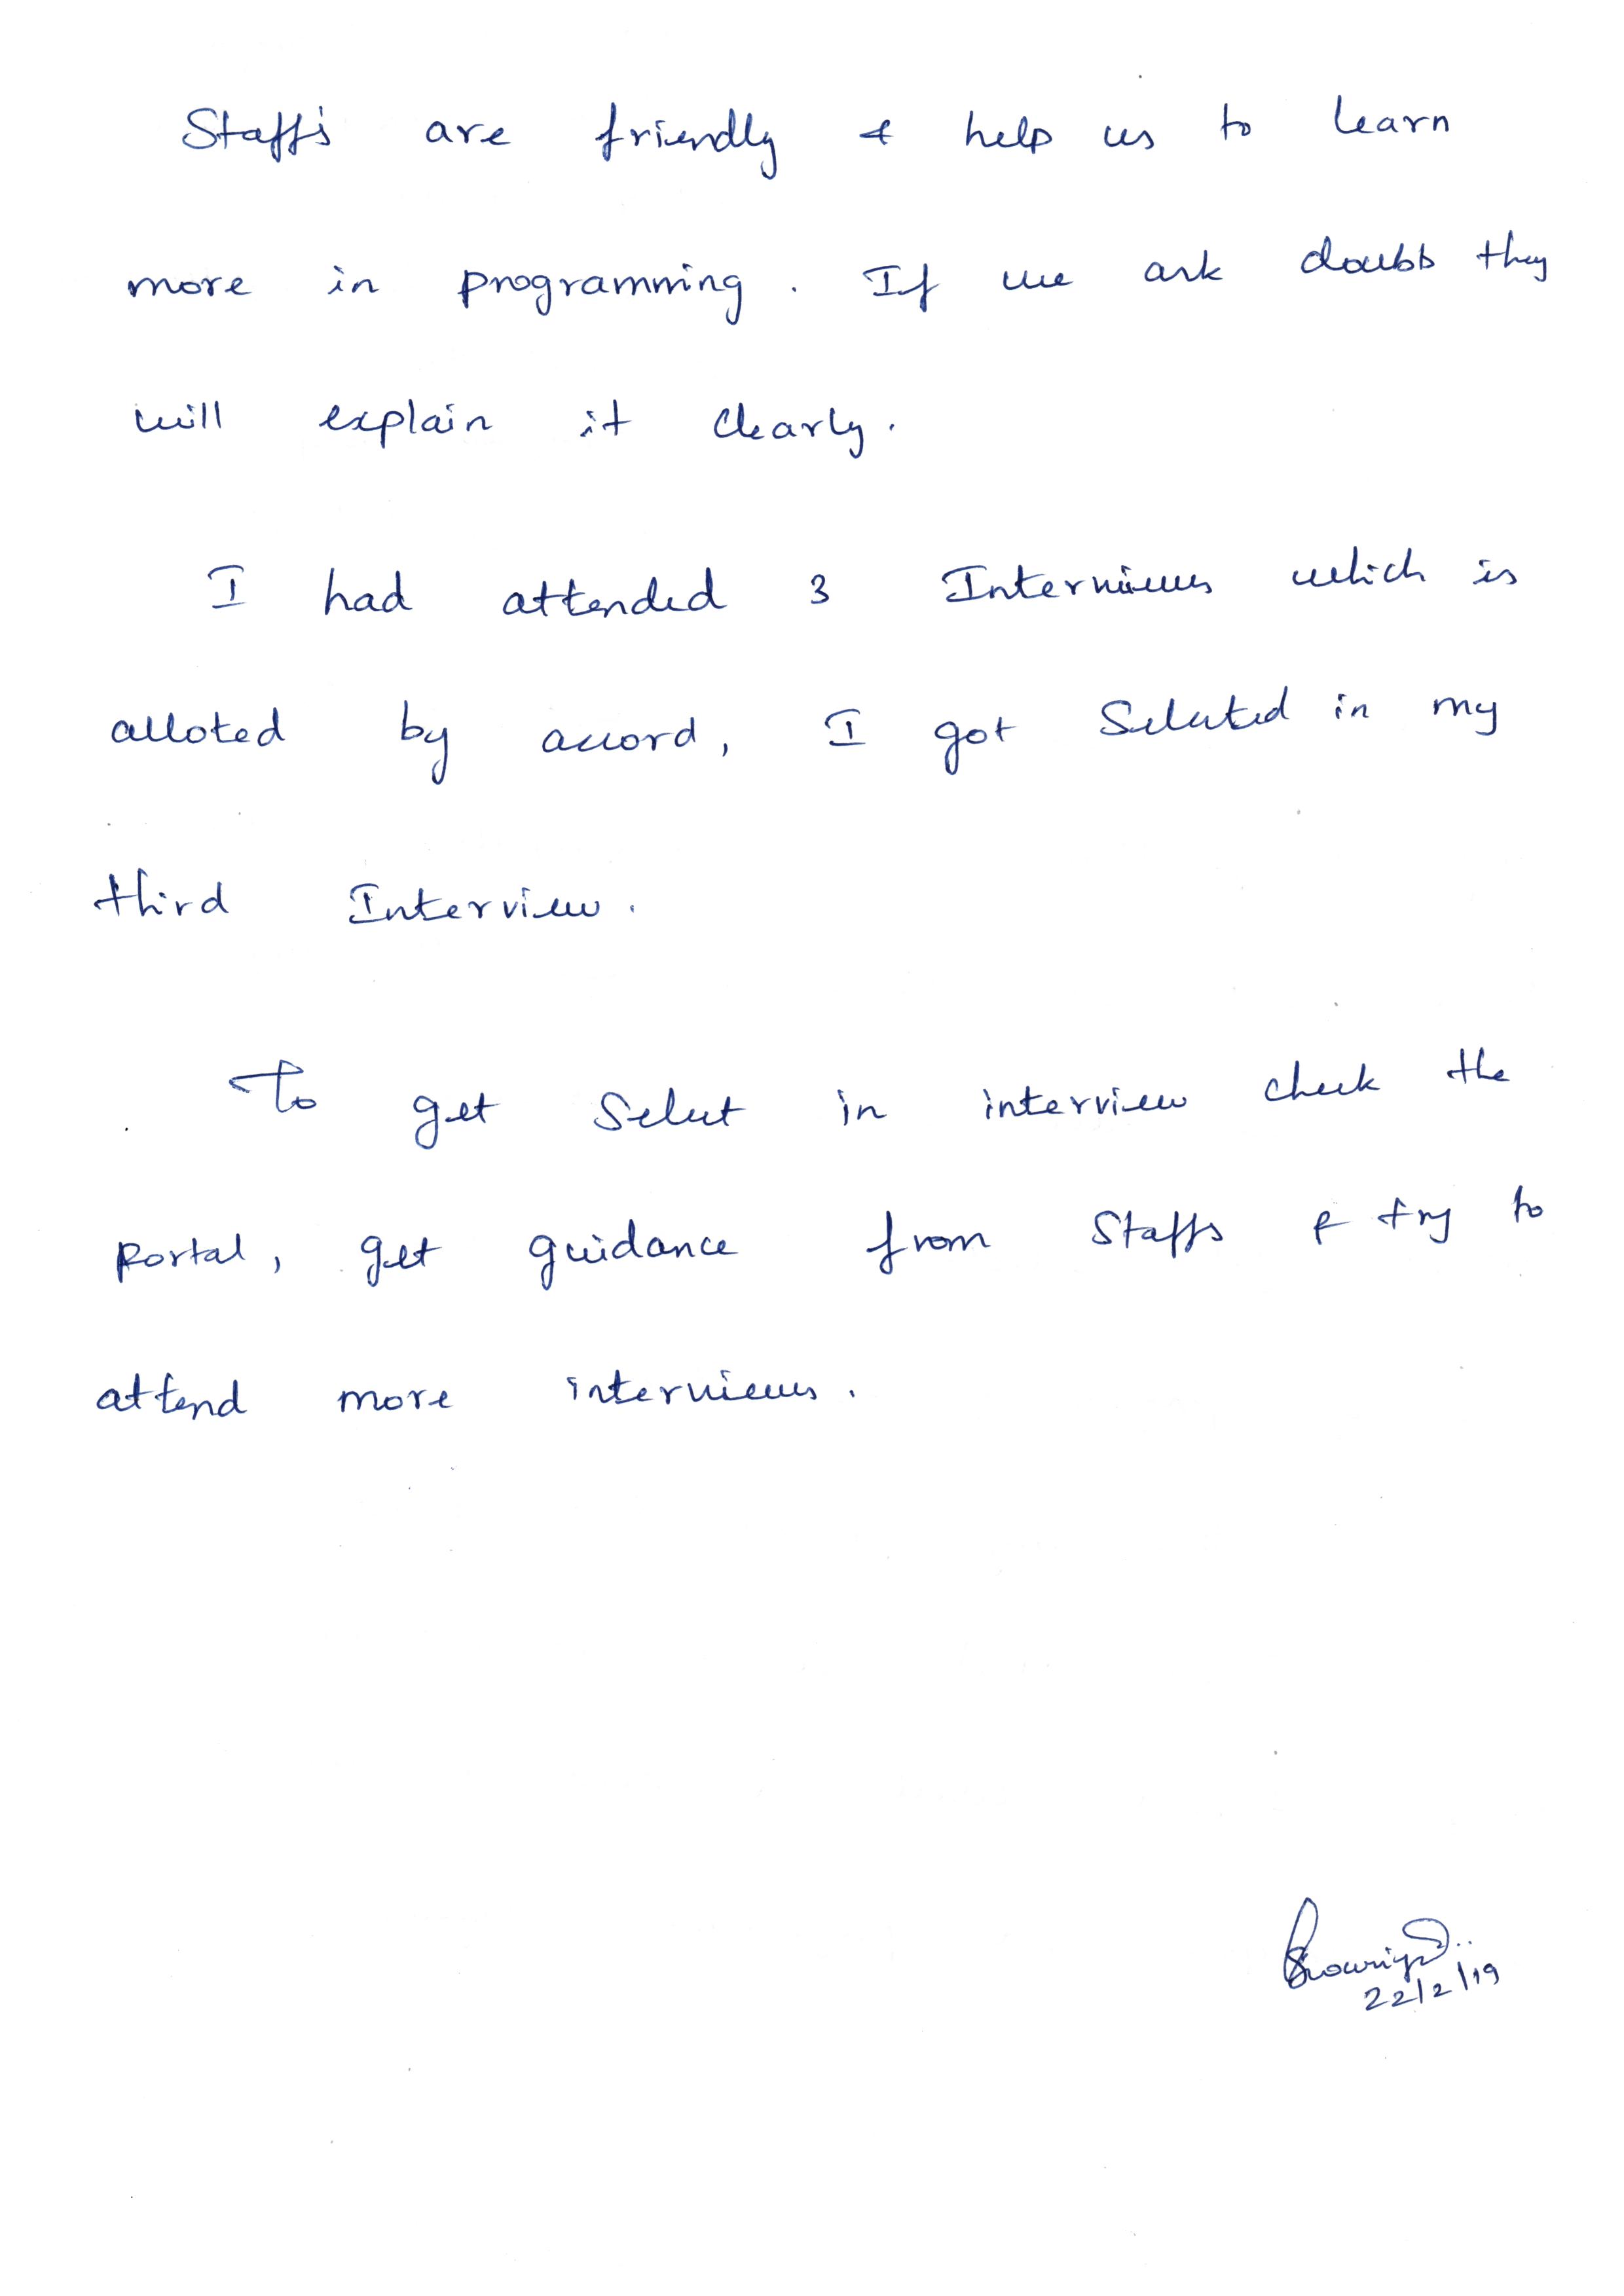 Staff's are friendly & help us to learn
more in programming. If we ask doubts they
will explain it clearly.
I had attended 3 Interviews which is
alloted by accord, I got Selected in my
third Interview.
To get Select in interview check the
portal, get guidance from Staffs & try to
attend more interviews.
22/2/19